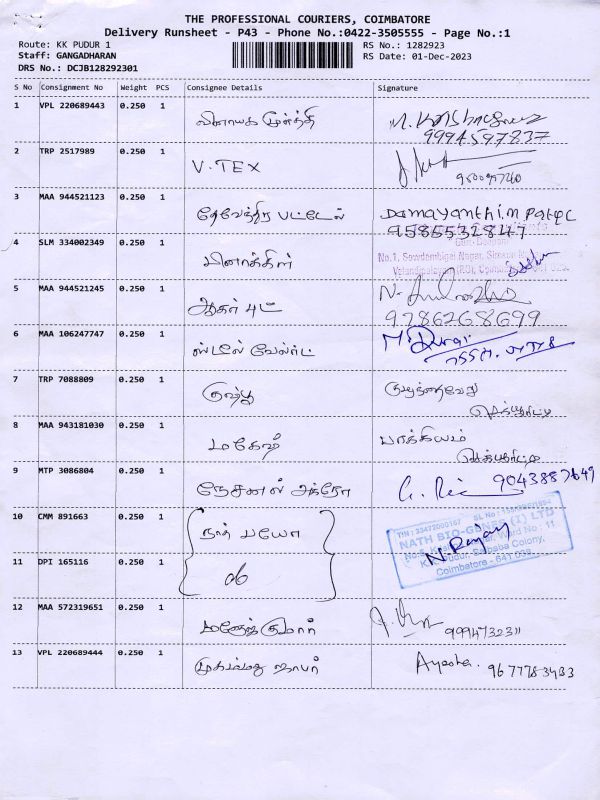 THE PROFESSIONAL COURIERS, COIMBATORE
Delivery Runsheet - P43 - Phone No.:0422-3505555 - Page No.:1
Route: KK PUDUR 1
RS No.: 1282923
Staff: GANGADHARAN
RS Date: 01-Dec-2023
DRS No.: DCJB128292301
S No Consignment No Weight PCS Consignee Details Signature
1 VPL 220689443 0.250 1 விநாயக மூர்த்தி
9994597837
2 TRP 2517989 0.250 1 V.TEX
3 MAA 944521123 0.250 1 தேவேந்திர பட்டேல் Damayanthi.m Patel
9585532847
4 SLM 334002349 0.250 1
No.1, Sowdambigai Nagar,
5 MAA 944521245 0.250 1
9786268699
6 MAA 106247747 0.250 1 ஸ்டீல் வேர்ல்ட் M. Durai
7 TRP 7088809 0.250 1 குஷ்பூ
8 MAA 943181030 0.250 1 மகேஷ் பாக்கியம்
9 MTP 3086804 0.250 1 நேசனல் அக்ரோ 9043887649
10 CMM 891663 0.250 1 நாத் பயோ
NATH BIO-GENES (I) LTD
N. Rajay
K.K. Pudur, Saibaba Colony,
Coimbatore - 641 038.
11 DPI 165116 0.250 1 do
12 MAA 572319651 0.250 1 மனோஜ்குமார்
13 VPL 220689444 0.250 1 Ayesha. 9677783433